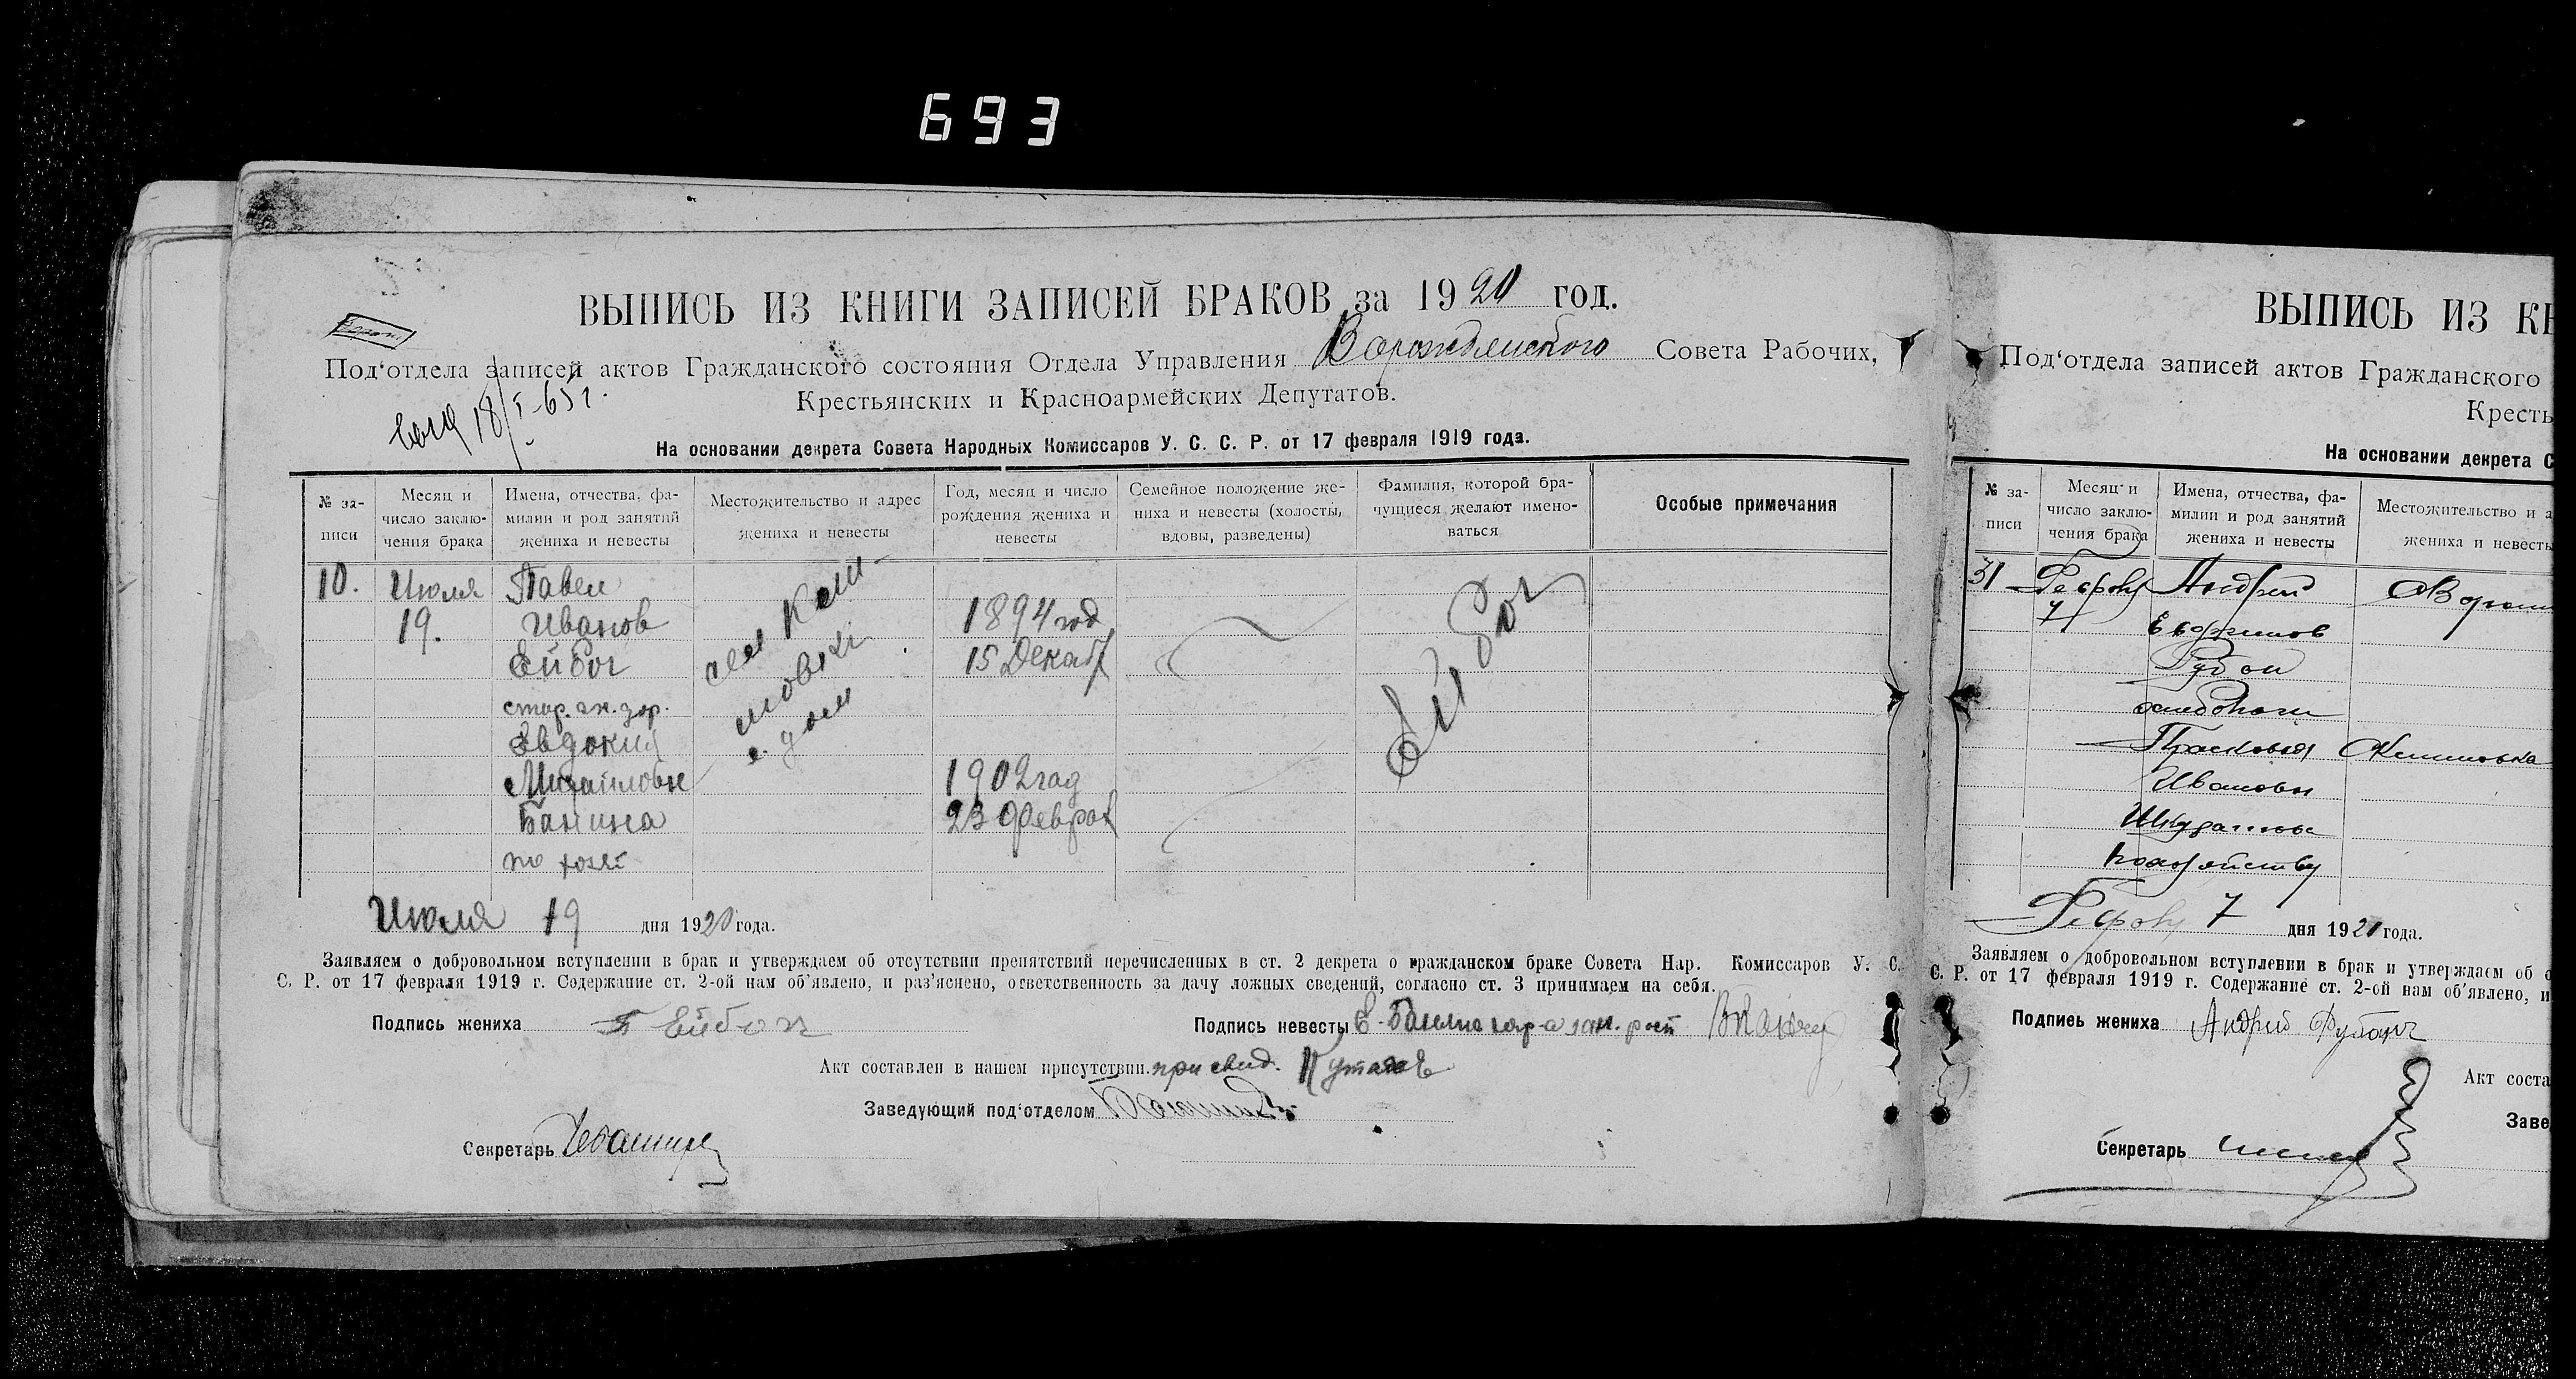 693
ВЫПИСЬ ИЗ КНИГИ ЗАПИСЕЙ БРАКОВ за 1920 год.
Под'отдела записей актов Гражданского состояния Отдела Управления Ворожбянского Совета Рабочих,
Крестьянских и Красноармейских Депутатов.
18/I-65 г.
На основании декрета Совета Народных Комиссаров У. С. С. Р. от 17 февраля 1919 года.
№ за-
писи
Месяц и
число заклю-
чения брака
Имена, отчества, фа-
милии и род занятий
жениха и невесты
Местожительство и адрес
жениха и невесты
Год, месяц и число
рождения жениха и
невесты
Семейное положение же-
ниха и невесты (холосты,
вдовы, разведены)
Фамилия, которой бра-
чущиеся желают имено-
ваться
Особые примечания
10.
Июля
19.
Павел
Иванов
Ейбог
Евдокия
Михайловн
Банина
по хозяй
1894 год
15 Декаб
1902 год
23 Феврал
Ейбог
Июля 19 дня 1920 года.
Заявляем о добровольном вступлении в брак и утверждаем об отсутствии препятствий перечисленных в ст. 2 декрета о гражданском браке Совета Нар. Комиссаров У. С.
С. Р. от 17 февраля 1919 г. Содержание ст. 2-ой нам об'явлено, и раз'яснено, ответственность за дачу ложных сведений, согласно ст. 3 принимаем на себя.
Подпись жениха П Ейбог
Подпись невесты Е. Банина
Акт составлен в нашем присутствии. при свид.
Заведующий под'отделом
Секретарь
ВЫПИСЬ ИЗ КН
Под'отдела записей актов Гражданского
Кресть
На основании декрета С
№ за-
писи
Месяц и
число заклю-
чения брака
Имена, отчества, фа-
милии и род занятий
жениха и невесты
Местожительство и а
жениха и невесты
31
7
Андрей
Прасковья
Ивановн
7 дня 1921 года.
Заявляем о добровольном вступлении в брак и утверждаем об о
С. Р. от 17 февраля 1919 г. Содержание ст. 2-ой нам об'явлено, и
Подпись жениха Андрей
Акт соста
Заве
Секретарь